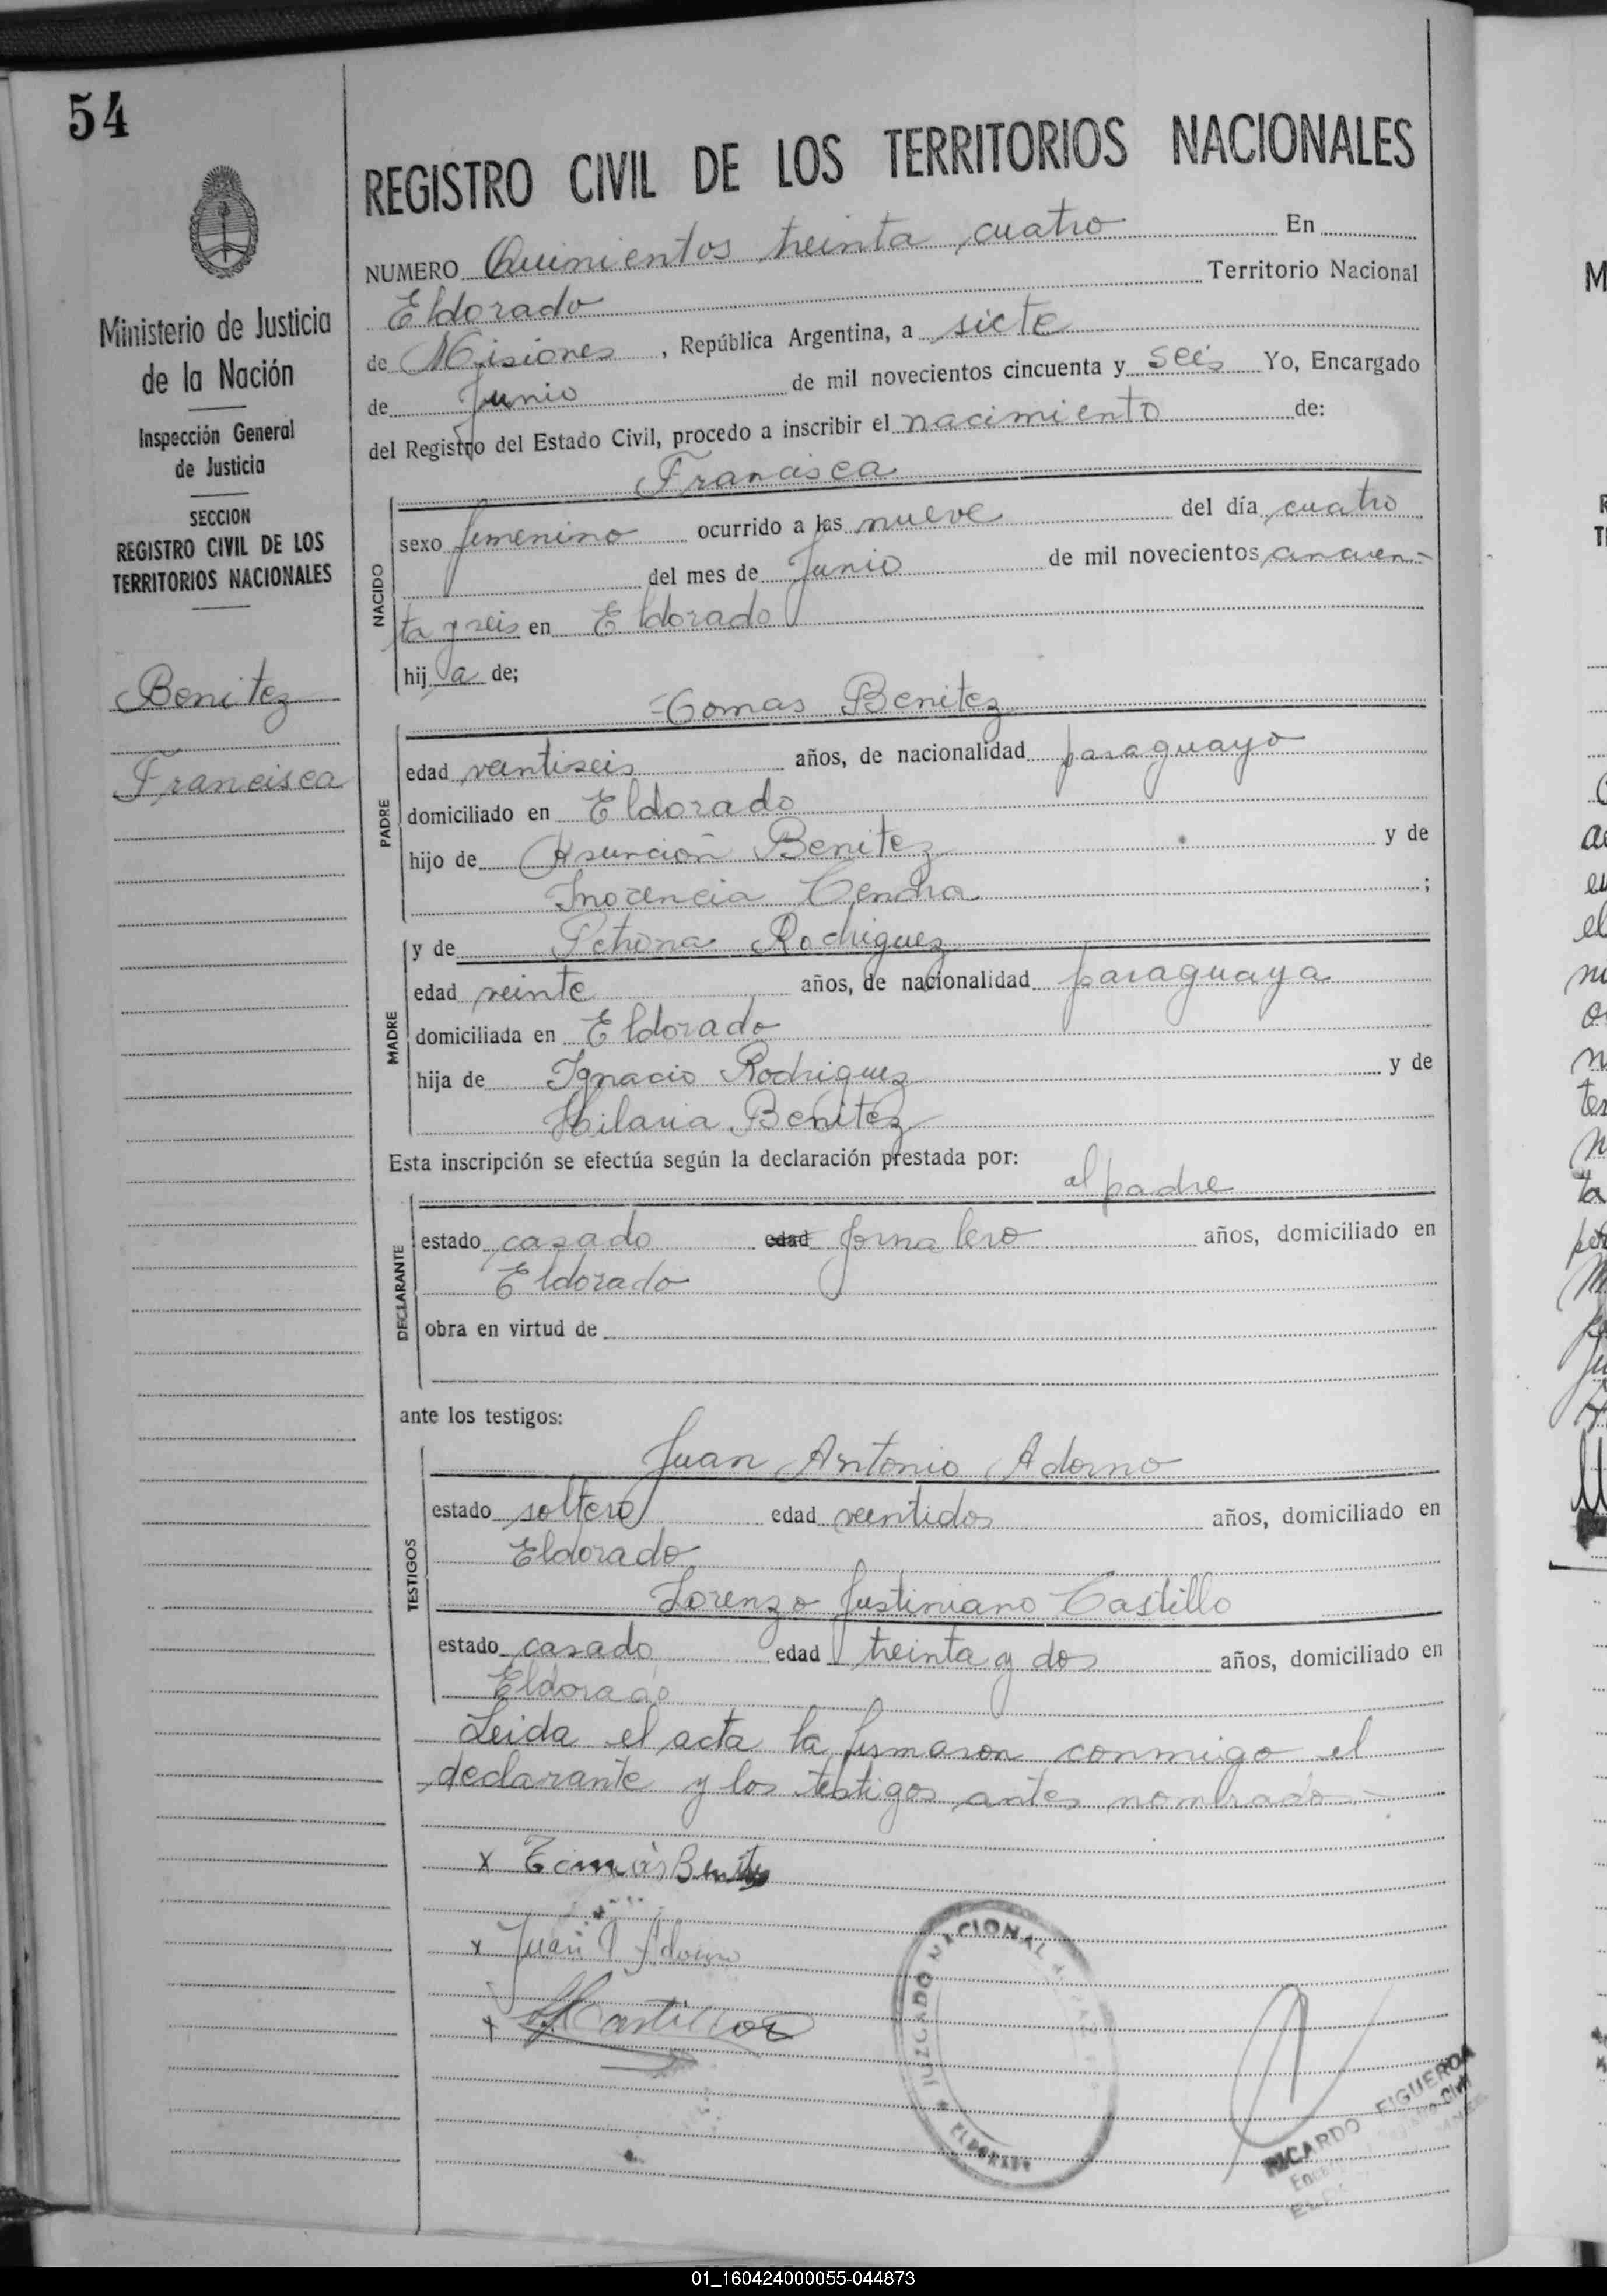 54
Ministerio de Justicia
de la Nación
Inspección General
de Justicia
SECCION
REGISTRO CIVIL DE LOS
TERRITORIOS NACIONALES
Benitez
Francisca
REGISTRO CIVIL DE LOS TERRITORIOS NACIONALES
NUMERO Quinientos treinta cuatro En
Eldorado Territorio Nacional
de Misiones, República Argentina, a siete
de Junio de mil novecientos cincuenta y seis Yo, Encargado
del Registro del Estado Civil, procedo a inscribir el nacimiento de:
Francisca
NACIDO
sexo femenino ocurrido a las nueve del día cuatro
del mes de Junio de mil novecientos cincuen-
ta y seis en Eldorado
hija de;
Tomas Benitez
PADRE
edad veintiseis años, de nacionalidad paraguayo
domiciliado en Eldorado
hijo de Asunción Benitez y de
Inocencia ;
MADRE
y de Petrona Rodriguez
edad veinte años, de nacionalidad paraguaya
domiciliada en Eldorado
hija de Ignacio Rodriguez y de
Hilaria Benitez
Esta inscripción se efectúa según la declaración prestada por:
el padre
DECLARANTE
estado casado edad jornalero años, domiciliado en
Eldorado
obra en virtud de
ante los testigos:
TESTIGOS
Juan Antonio Adorno
estado soltero edad veintidos años, domiciliado en
Eldorado
Lorenzo Justiniano Castillo
estado casado edad treinta y dos años, domiciliado en
Eldorado
Leida el acta la firmaron conmigo el
declarante y los testigos antes nombrados.-
x Tomás Benitez
x Juan A Adorno
x Castillo
JUZGADO NACIONAL
ELDORADO
RICARDO FIGUEROA
01_160424000055-044873